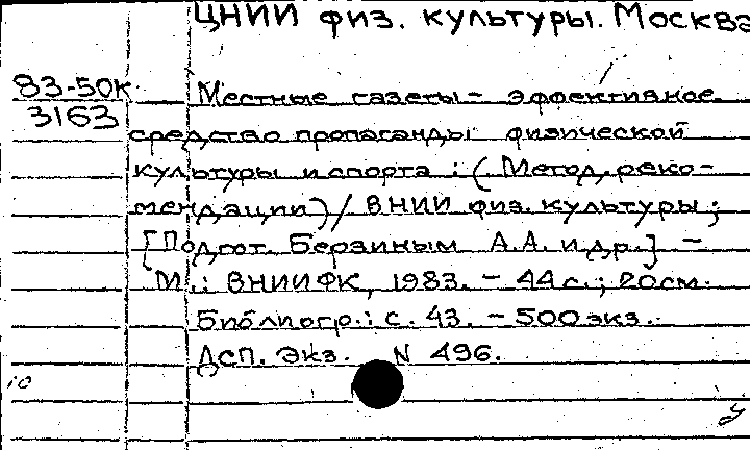 ЦНИИ физ. культуры. Москва
83-50К
3163
Местные газеты - эффективное
средство пропаганды физической
культуры и спорта : (Метод. реко-
мендации) / ВНИИ физ. культуры ;
[Подгот. Берзиным А.А. и др.] -
М.: ВНИИФК, 1983. - 44 с.; 20 см.
Библиогр.: с. 43. - 500 экз.
Дсп. Экз. N 496.
10